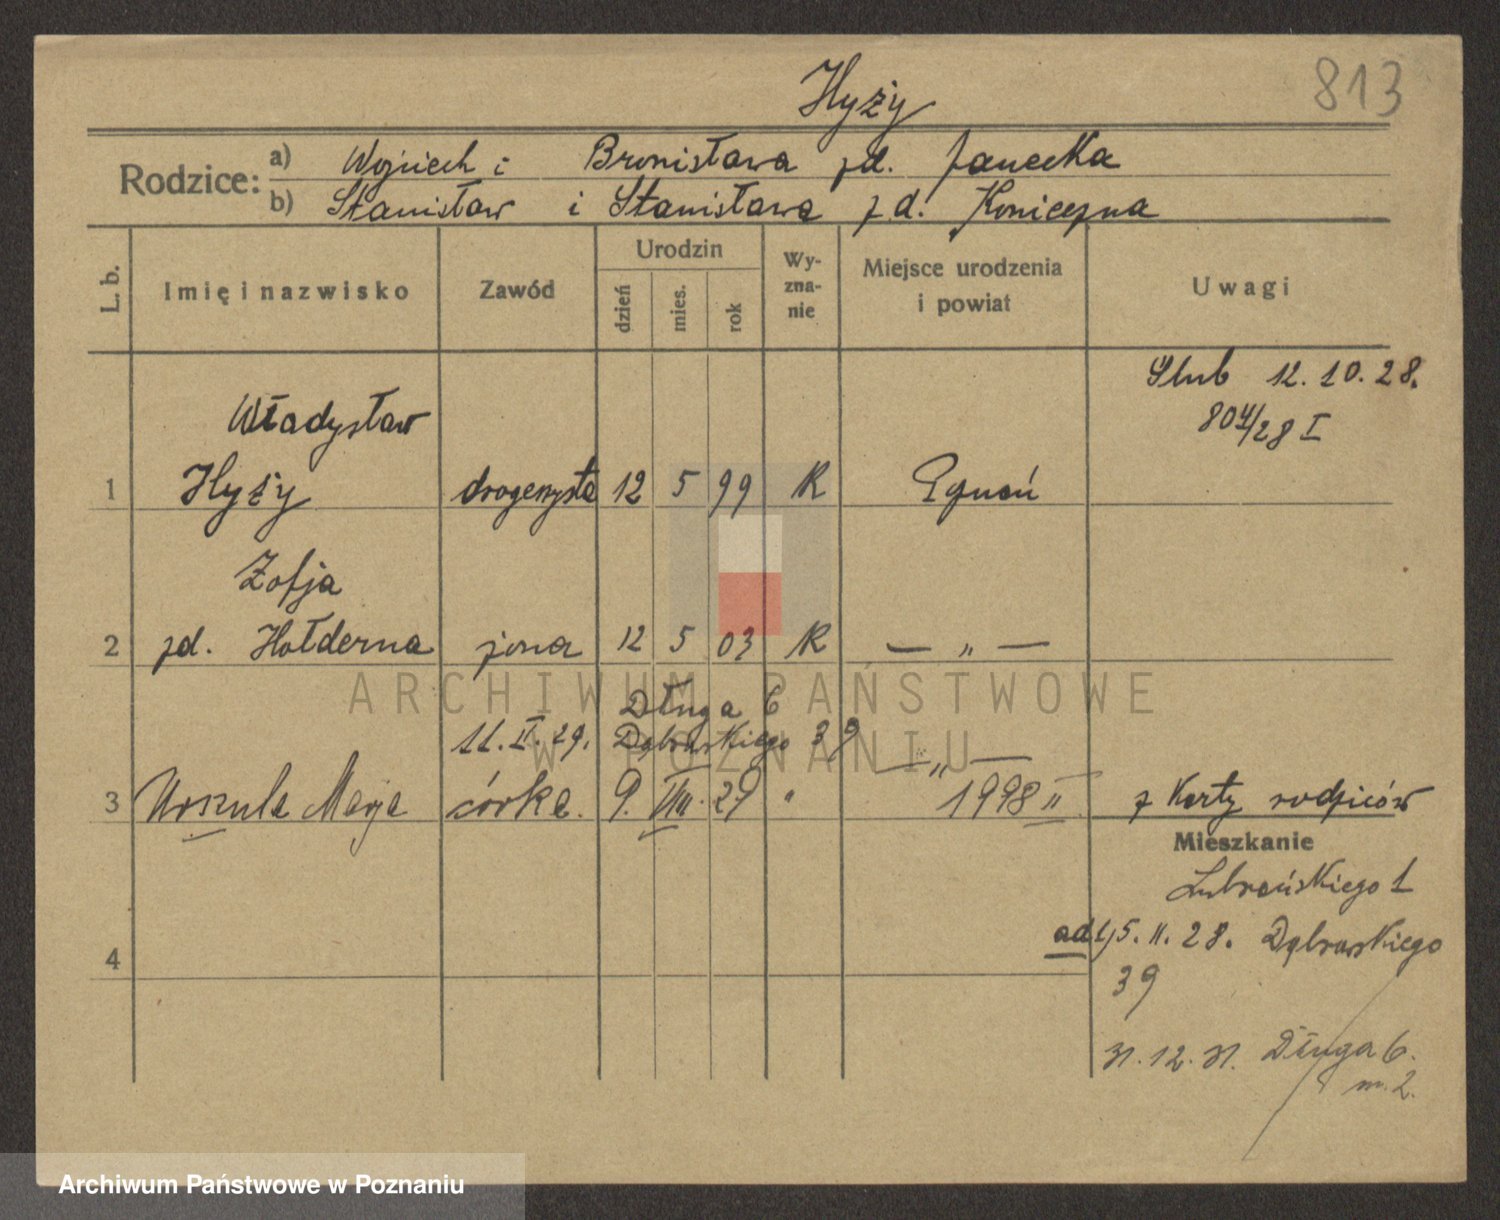 813
Hyży
Rodzice:
a) Wojciech i Bronisława zd. Janecka
b) Stanisław i Stanisława zd. Konieczna
L. b.
Imię i nazwisko
Zawód
Urodzin
dzień
mies.
rok
Wy-
zna-
nie
Miejsce urodzenia
i powiat
Uwagi
Ślub 12. 10. 28.
804/28 I
Władysław
1 Hyży drogerzysta 12 5 99 R Poznań
Zofja
2 zd. Hołderna żona 12 5 03 R — „ —
Długa 6
11. II. 29. Dąbrowskiego 39
— „ —
3 Urszula Marja córka. 9. VIII. 29 " 1998 II z Karty rodziców
Mieszkanie
Lubrańskiego 1
ad 1) 5. 11. 28. Dąbrowskiego
39
4
31. 12. 31. Długa 6.
m. 2.
ARCHIWUM PAŃSTWOWE
W POZNANIU
Archiwum Państwowe w Poznaniu